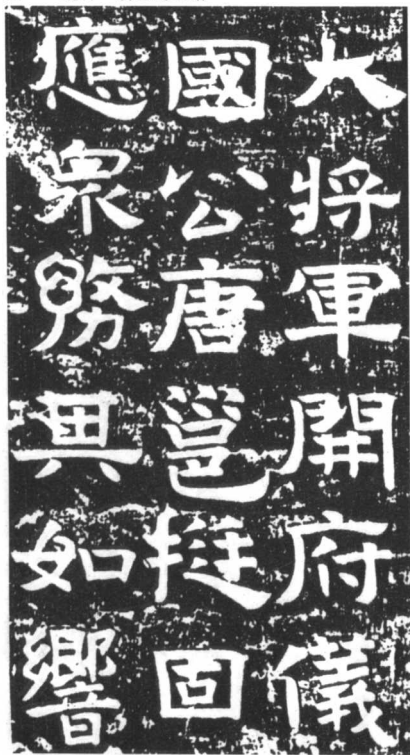 大將軍開府儀
國公唐邕挺固
應衆務異如響